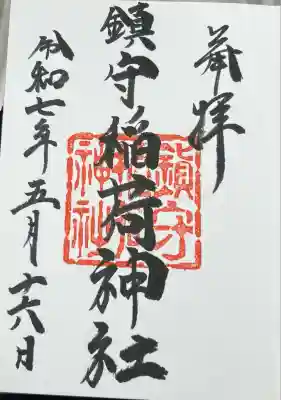 奉拝
鎮守稲荷神社
令和七年五月十六日
鎮守
神社